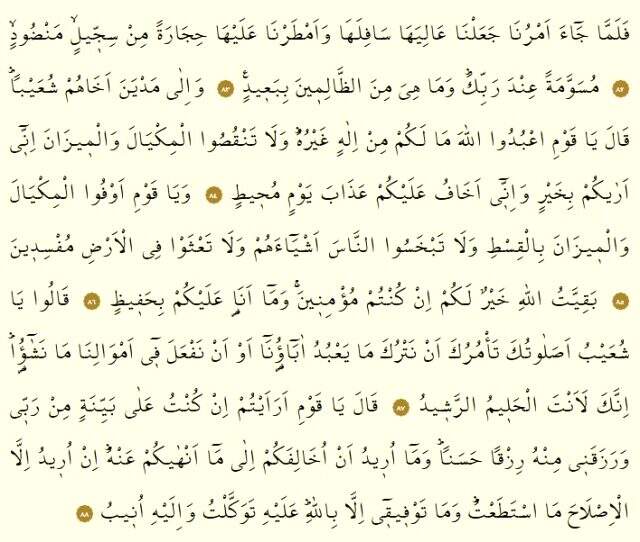 فَلَمَّا جَٓاءَ اَمْرُنَا جَعَلْنَا عَالِيَهَا سَافِلَهَا وَاَمْطَرْنَا عَلَيْهَا حِجَارَةً مِنْ سِجّ۪يلٍ مَنْضُودٍۙ
﴿٨٢﴾ مُسَوَّمَةً عِنْدَ رَبِّكَۜ وَمَا هِيَ مِنَ الظَّالِم۪ينَ بِبَع۪يدٍ۟ ﴿٨٣﴾ وَاِلٰى مَدْيَنَ اَخَاهُمْ شُعَيْباًۜ
قَالَ يَا قَوْمِ اعْبُدُوا اللّٰهَ مَا لَكُمْ مِنْ اِلٰهٍ غَيْرُهُۜ وَلَا تَنْقُصُوا الْمِكْيَالَ وَالْم۪يزَانَ اِنّ۪ٓي
اَرٰيكُمْ بِخَيْرٍ وَاِنّ۪ٓي اَخَافُ عَلَيْكُمْ عَذَابَ يَوْمٍ مُح۪يطٍ ﴿٨٤﴾ وَيَا قَوْمِ اَوْفُوا الْمِكْيَالَ
وَالْم۪يزَانَ بِالْقِسْطِ وَلَا تَبْخَسُوا النَّاسَ اَشْيَٓاءَهُمْ وَلَا تَعْثَوْا فِي الْاَرْضِ مُفْسِد۪ينَ
﴿٨٥﴾ بَقِيَّتُ اللّٰهِ خَيْرٌ لَكُمْ اِنْ كُنْتُمْ مُؤْمِن۪ينَۚ وَمَٓا اَنَا۬ عَلَيْكُمْ بِحَف۪يظٍ ﴿٨٦﴾ قَالُوا يَا
شُعَيْبُ اَصَلٰوتُكَ تَأْمُرُكَ اَنْ نَتْرُكَ مَا يَعْبُدُ اٰبَٓاؤُ۬نَٓا اَوْ اَنْ نَفْعَلَ ف۪ٓي اَمْوَالِنَا مَا نَشٰٓؤُ۬اۜ
اِنَّكَ لَاَنْتَ الْحَل۪يمُ الرَّش۪يدُ ﴿٨٧﴾ قَالَ يَا قَوْمِ اَرَاَيْتُمْ اِنْ كُنْتُ عَلٰى بَيِّنَةٍ مِنْ رَبّ۪ي
وَرَزَقَن۪ي مِنْهُ رِزْقاً حَسَناًۜ وَمَٓا اُر۪يدُ اَنْ اُخَالِفَكُمْ اِلٰى مَٓا اَنْهٰيكُمْ عَنْهُۜ اِنْ اُر۪يدُ اِلَّا
الْاِصْلَاحَ مَا اسْتَطَعْتُۜ وَمَا تَوْف۪يق۪ٓي اِلَّا بِاللّٰهِۜ عَلَيْهِ تَوَكَّلْتُ وَاِلَيْهِ اُن۪يبُ ﴿٨٨﴾